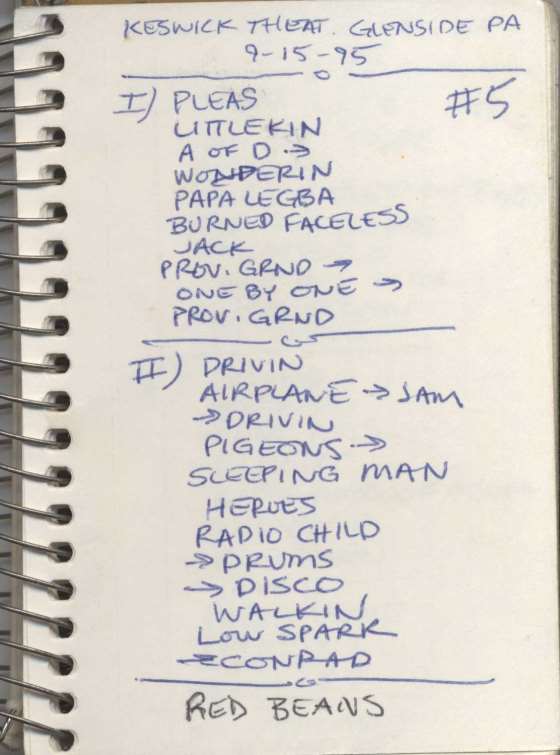 KESWICK THEAT. GLENSIDE PA
9-15-95
#5
I) PLEAS
LITTLEKIN
A OF D →
WONDERIN
PAPA LEGBA
BURNED FACELESS
JACK
PROV. GRND →
ONE BY ONE →
PROV. GRND
II) DRIVIN
AIRPLANE → JAM
→ DRIVIN
PIGEONS →
SLEEPING MAN
HEROES
RADIO CHILD
→ DRUMS
→ DISCO
WALKIN
LOW SPARK
CONRAD
RED BEANS